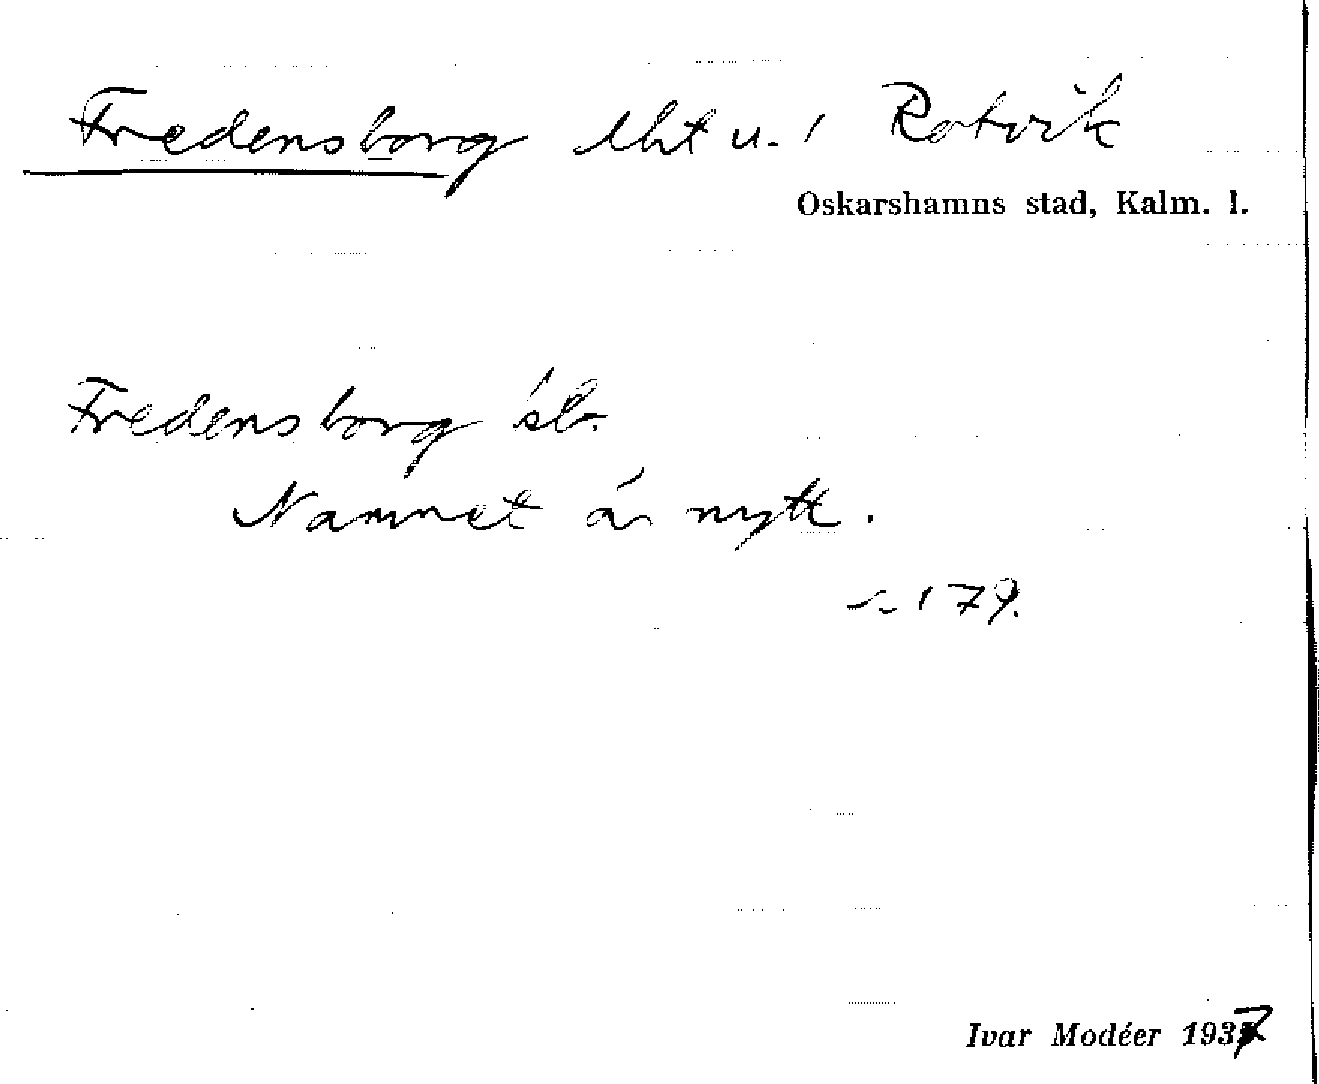 Fredensborg lht u. 1 Rotvik
Oskarshamns stad, Kalm. l.
Fredensborg
Namnet är nytt.
179.
Ivar Modéer 1937